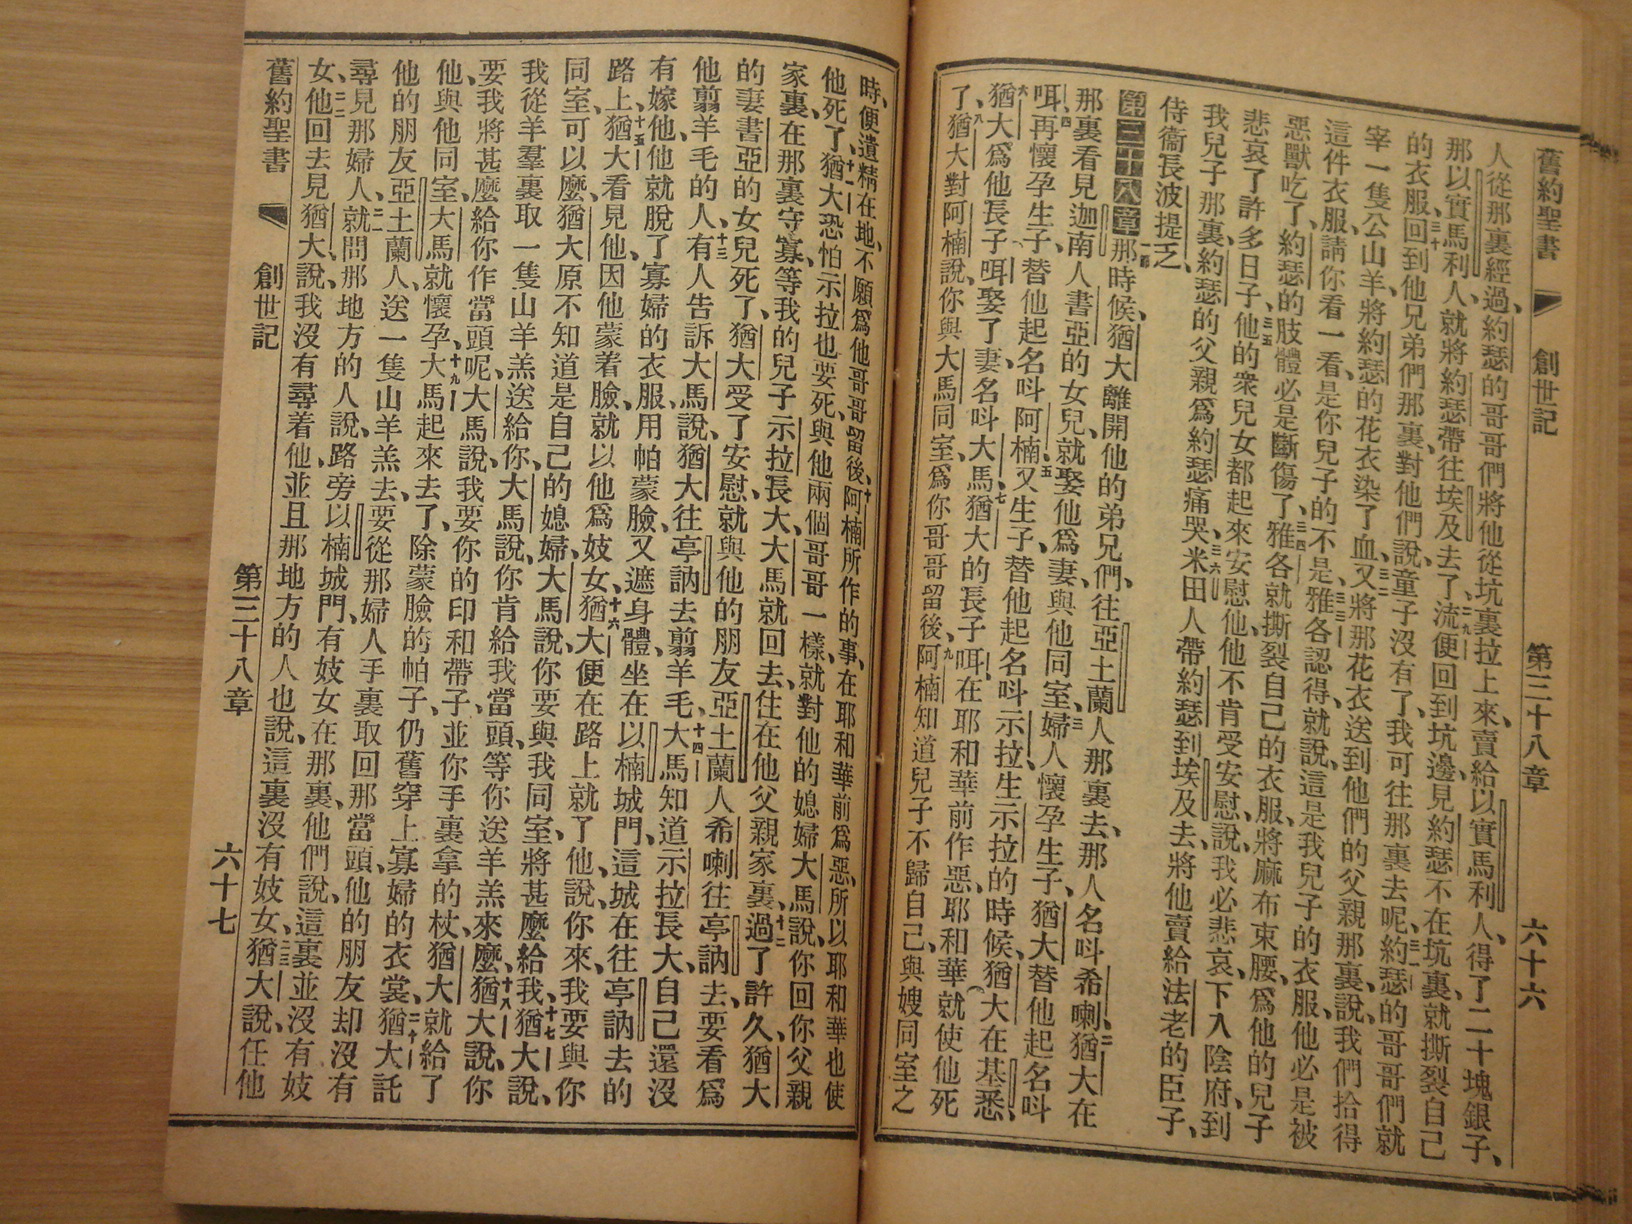 舊約聖書 創世記 第三十八章 六十六
人從那裏經過、約瑟的哥哥們將他從坑裏拉上來、賣給以實馬利人、得了二十塊銀子、
那以實馬利人、就將約瑟帶往埃及去了、二九流便回到坑邊、見約瑟不在坑裏、就撕裂自己
的衣服、三十回到他兄弟們那裏、對他們說、童子沒有了、我可往那裏去呢、三一約瑟的哥哥們就
宰一隻公山羊、將約瑟的花衣染了血、三二又將那花衣送到他們的父親那裏、說、我們拾得
這件衣服、請你看一看、是你兒子的不是、三三雅各認得、就說、這是我兒子的衣服、他必是被
惡獸吃了、約瑟的肢體必是斷傷了、三四雅各就撕裂自己的衣服、將麻布束腰、爲他的兒子
悲哀了許多日子、三五他的衆兒女都起來安慰他、他不肯受安慰、說、我必悲哀、下入陰府、到
我兒子那裏、約瑟的父親爲約瑟痛哭、三六米田人帶約瑟到埃及去、將他賣給法老的臣子、
侍衞長波提乏、
第三十八章 一節那時候、猶大離開他的弟兄們、往亞土蘭人那裏去、那人名呌希喇、二猶大在
那裏看見迦南人書亞的女兒、就娶他爲妻、與他同室、三婦人懷孕生子、猶大替他起名呌
咡、四再懷孕生子、替他起名呌阿楠、五又生子、替他起名呌示拉、生示拉的時候、猶大在基悉、
六猶大爲他長子咡娶了妻、名呌大馬、七猶大的長子咡、在耶和華前作惡、耶和華就使他死
了、八猶大對阿楠說、你與大馬同室、爲你哥哥留後、九阿楠知道兒子不歸自己、與嫂同室之
時、便遺精在地、不願爲他哥哥留後、十阿楠所作的事、在耶和華前爲惡、所以耶和華也使
他死了、十一猶大恐怕示拉也要死、與他兩個哥哥一樣、就對他的媳婦大馬說、你回你父親
家裏、在那裏守寡、等我的兒子示拉長大、大馬就回去、住在他父親家裏、十二過了許久、猶大
的妻書亞的女兒死了、猶大受了安慰、就與他的朋友亞土蘭人希喇往亭訥去、要看爲
他翦羊毛的人、十三有人告訴大馬說、猶大往亭訥去翦羊毛、十四大馬知道示拉長大、自己還沒
有嫁他、他就脫了寡婦的衣服、用帕蒙臉、又遮身體、坐在以楠城門、這城在往亭訥去的
路上、十五猶大看見他、因他蒙着臉、就以他爲妓女、十六猶大便在路上就了他、說、你來、我要與你
同室、可以麼、猶大原不知道是自己的媳婦、大馬說、你要與我同室、將甚麼給我、十七猶大說、
我從羊羣裏取一隻山羊羔送給你、大馬說、你肯給我當頭、等你送羊羔來麼、十八猶大說、你
要我將甚麼給你作當頭呢、大馬說、我要你的印和帶子、並你手裏拿的杖、猶大就給了
他、與他同室、大馬就懷孕、十九大馬起來去了、除蒙臉的帕子、仍舊穿上寡婦的衣裳、二十猶大託
他的朋友亞土蘭人、送一隻山羊羔去、要從那婦人手裏取回那當頭、他的朋友却沒有
尋見那婦人、二一就問那地方的人、說、路旁以楠城門、有妓女在那裏、他們說、這裏並沒有妓
女、二二他回去見猶大、說、我沒有尋着他、並且那地方的人也說、這裏沒有妓女、二三猶大說、任他
舊約聖書 創世記 第三十八章 六十七